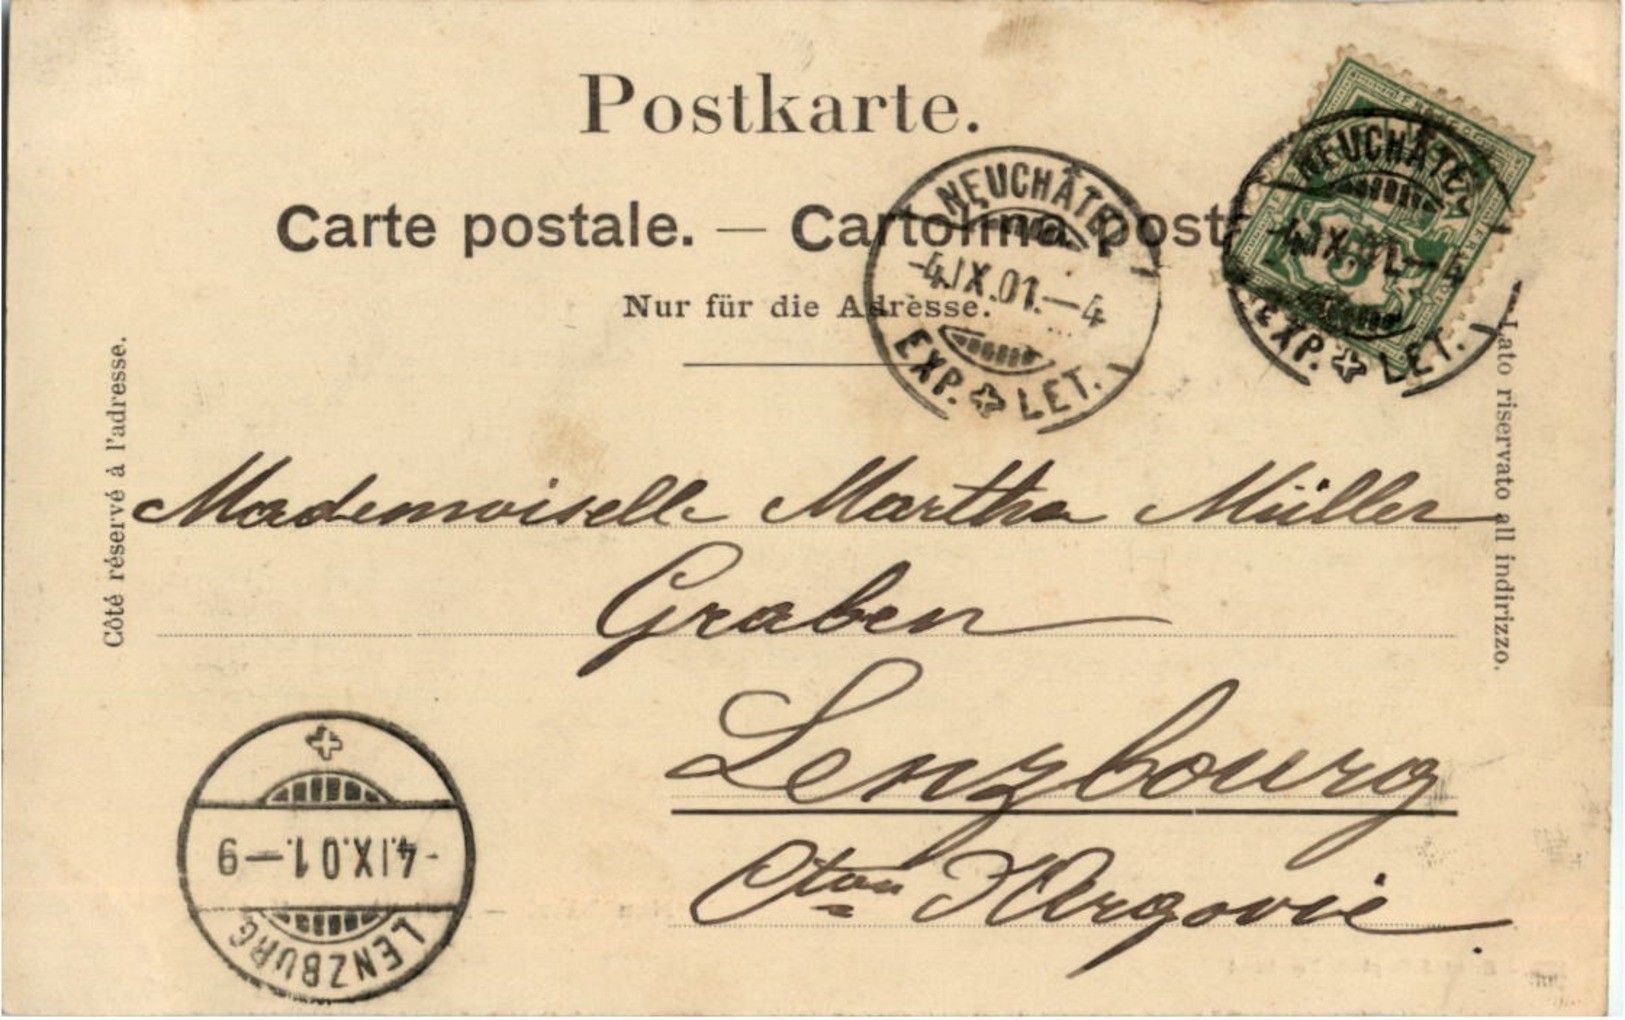 Postkarte.
Carte postale. — Cartolina post
Nur für die Adresse.
NEUCHÂTEL
-4.IX.01.—4
EXP. LET.
NEUCHÂTEL
-4.IX.01.—4
EXP. LET.
Côté réservé à l'adresse.
Lato riservato all indirizzo.
Mademoiselle Martha Müller
Graben
Lenzbourg
Cton Argovie
-4.IX.01.—9
LENZBURG